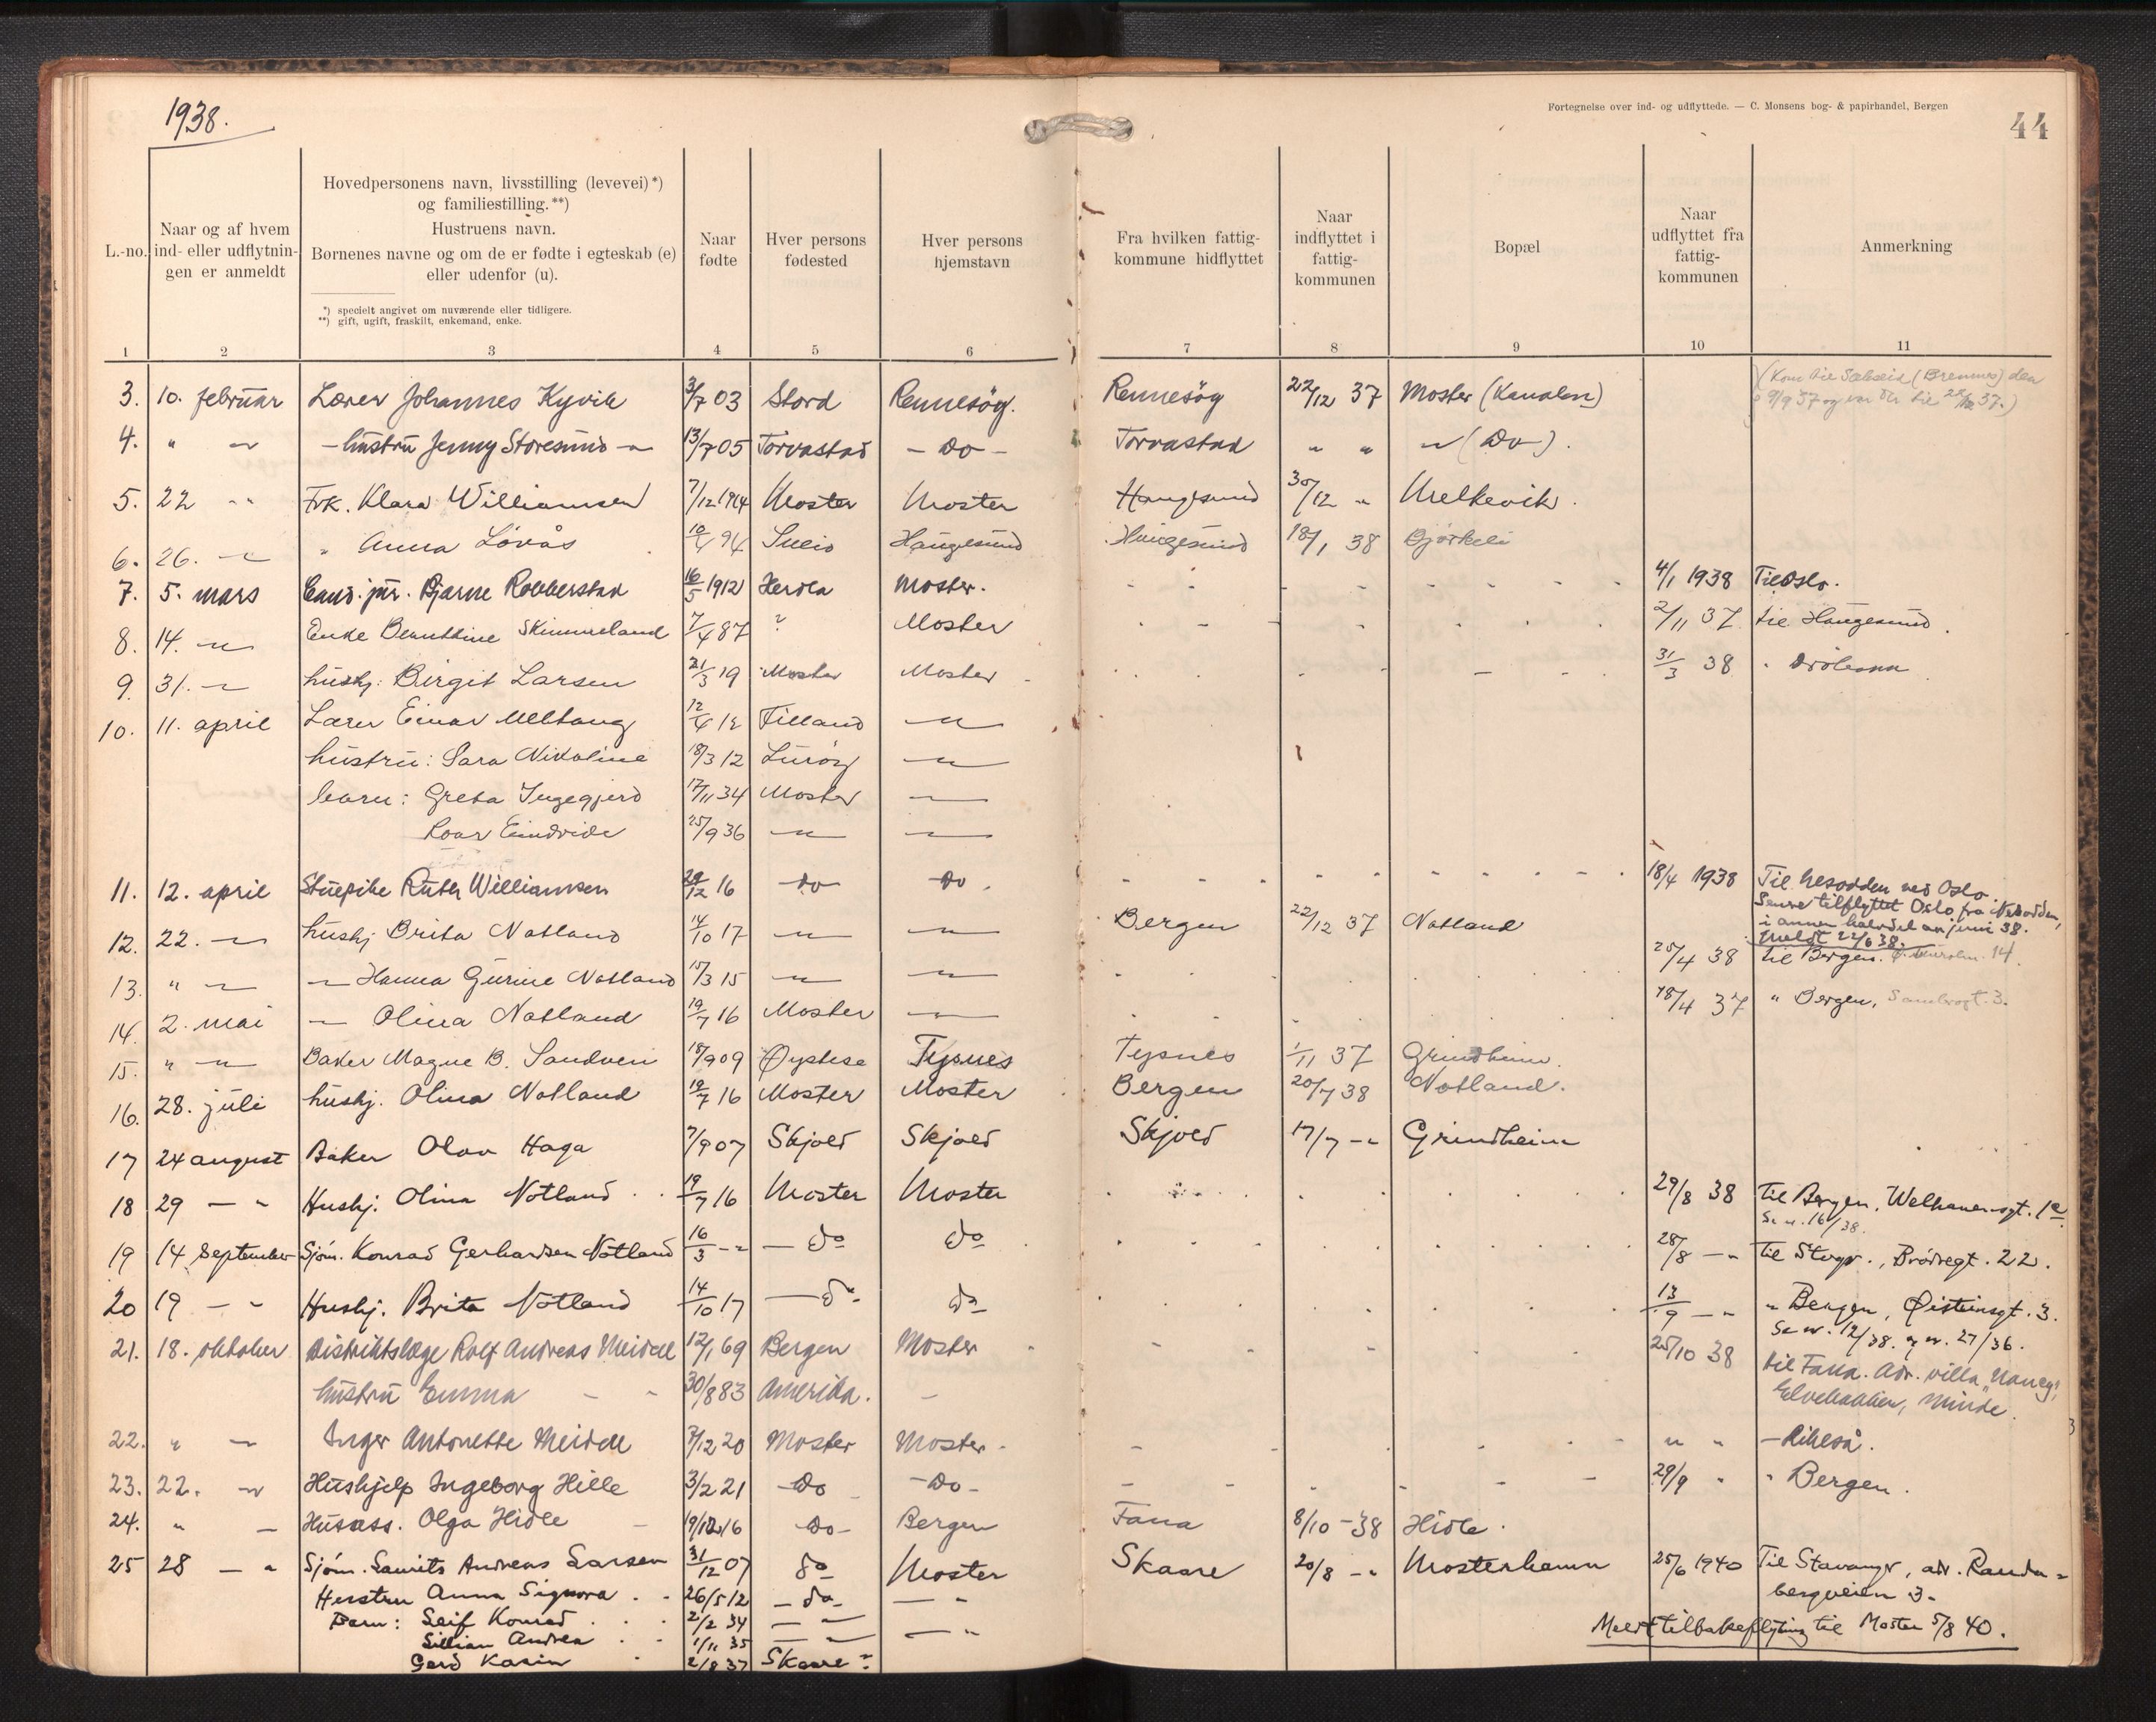 1938.
Fortegnelse over ind- og udflyttede. — C. Monsens bog- & papirhandel, Bergen
44
L.-no.
Naar og af hvem
ind- eller udflytnin-
gen er anmeldt
Hovedpersonens navn, livsstilling (levevei)*)
og familiestilling.**)
Hustruens navn.
Børnenes navne og om de er fødte i egteskab (e)
eller udenfor (u).
*) specielt angivet om nuværende eller tidligere.
**) gift, ugift, fraskilt, enkemand, enke.
Naar
fødte
Hver persons
fødested
Hver persons
hjemstavn
Fra hvilken fattig-
kommune hidflyttet
Naar
indflyttet i
fattig-
kommunen
Bopæl
Naar
udflyttet fra
fattig-
kommunen
Anmerkning
1 2 3 4 5 6 7 8 9 10 11
3. 10. februar Lærer Johannes Kyvik 3/7 03 Stord Rennesøy. Rennesøy 22/12 37 Moster (Kanalen)
4. " " - hustru Jenny Storesund - " 13/7 05 Torvastad - Do - Torvastad " " " (Do).
5. 22 " Frk. Klara Williamsen 7/12 1914 Moster Moster Haugesund 30/12 " Melkevik.
6. 26. " " Anna Lovås 94 Sveio Haugesund Haugesund 18/1 38 Bjørkeli
7. 5. mars Cand. jur. Bjarne Robberstad 16/5 1912 Herdla Moster. 4/1 1938 Til Oslo.
8. 14. " Enke Skimmeland 7/4 87 ? Moster 2/11 37 til Haugesund.
9. 31. " hushj. Birgit Larsen 21/3 19 Moster Moster 31/3 38 "
10. 11. april Lærer Einar 12/4 12 "
hustru: Sara Nikoline 18/3 12 Lurøy "
barn: Greta Ingegjerd 17/11 34 Moster "
Roar Eindride 25/9 36 " "
11. 12. april Stuepike Ruth Williamsen 29/12 16 Do Do. 18/4 1938 Til Nesodden ved Oslo.
Senere tilflyttet Oslo fra Nesodden,
i annen halvdel av juni 38.
Meldt 22/6 38.
12. 22. " hushj Brita Notland 14/10 17 " " Bergen 22/12 37 Notland
13. " " " Hanna Gurine Notland 15/3 15 " " 25/4 38 til Bergen. 14.
14. 2. mai " Olina Notland 19/7 16 Moster " 18/4 37 " Bergen, 3.
15. " " Baker Magne B. Sandven 18/9 09 Øystese Tysnes Tysnes 1/11 37 Grindheim.
16. 28. juli hushj. Olina Notland 19/7 16 Moster Moster Bergen 20/7 38 Notland.
17 24 august Baker Olav Haga 7/9 07 Skjold Skjold Skjold 17/7 -" Grindheim
18 29 - " Hushj. Olina Notland 19/7 16 Moster Moster 29/8 38 Til Bergen, Welhavensgt. 1c
Se n. 16/38.
19 14 September Sjøm. Konrad Gerhardsen Notland 16/3 -" - do do 28/8 -" Til Stvgr., Brødregt. 22.
20 19 - " Hushj. Brita Notland 14/10 17 - do do 13/9 -" " Bergen, Øisteinsgt. 3.
Se nr. 12/38. og nr. 27/36.
21. 18. oktober Distriktslæge Rolf Andreas Meidell 12/1 69 Bergen Moster 25/10 38 til Fana. Adr. villa "Nancy",
hustru Emma - " 30/8 83 Amerika. - Elvebakken, Minde.
22. " " Inger Antonette Meidell 7/12 20 Moster Moster. " "
23. 22. " Hushjelp Ingeborg Hille 3/2 21 - Do - Do - 29/9 " " Bergen.
24. " - Husass. Olga Hidle 19/12 16 - Do - Bergen Fana 8/10 - 38 Hidle.
25 28 - " Sjøm. Laurits Andreas Larsen 31/12 07 do Moster Skaare 20/8 -" Mosterhamn 25/6 1940 Til Stavanger, adr. Randa-
Hustru Anna Signora 26/5 12 - do - - " bergveien 3.
Barn: Leif Konrad 2/2 34 - "
Lillian Andrea 1/11 35 - " - " Meldt tilbakeflytning til Moster 5/8 40.
Gerd Karin 2/8 37 Skaare